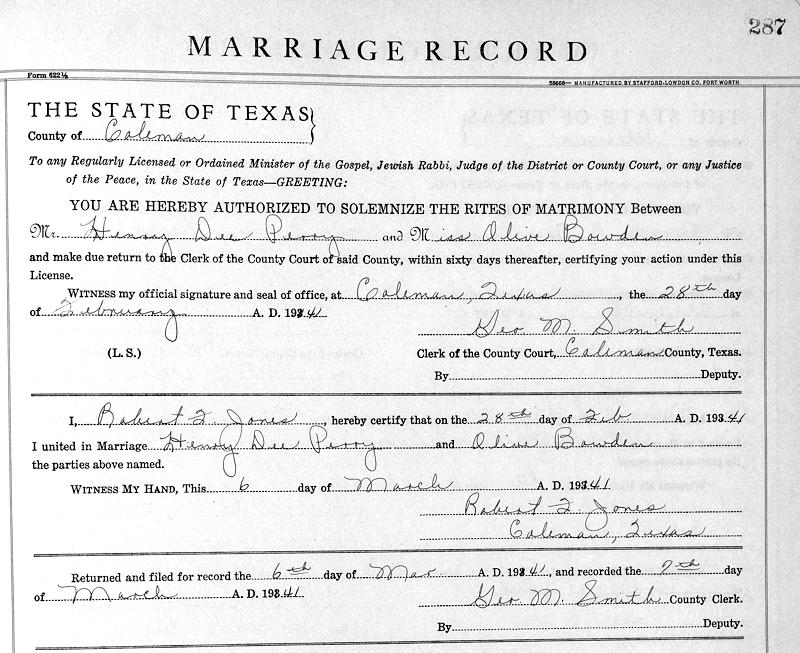 287
MARRIAGE RECORD
Form 622½
58666— MANUFACTURED BY STAFFORD-LOWDON CO. FORT WORTH
THE STATE OF TEXAS
County of Coleman
To any Regularly Licensed or Ordained Minister of the Gospel, Jewish Rabbi, Judge of the District or County Court, or any Justice
of the Peace, in the State of Texas—GREETING:
YOU ARE HEREBY AUTHORIZED TO SOLEMNIZE THE RITES OF MATRIMONY Between
Mr. Henry Dee Perry and Miss Olive Bowden
and make due return to the Clerk of the County Court of said County, within sixty days thereafter, certifying your action under this
License.
WITNESS my official signature and seal of office, at Coleman, Texas, the 28th day
of February A. D. 1941
Geo M. Smith
(L. S.) Clerk of the County Court, Coleman County, Texas.
By Deputy.
I, Robert F Jones, hereby certify that on the 28th day of Feb A. D. 1941
I united in Marriage Henry Dee Perry and Olive Bowden
the parties above named.
WITNESS MY HAND, This 6 day of March A. D. 1941
Robert F Jones
Coleman, Texas
Returned and filed for record the 6th day of Mar A. D. 1941, and recorded the 7th day
of March A. D. 1941 Geo M. Smith County Clerk.
By Deputy.